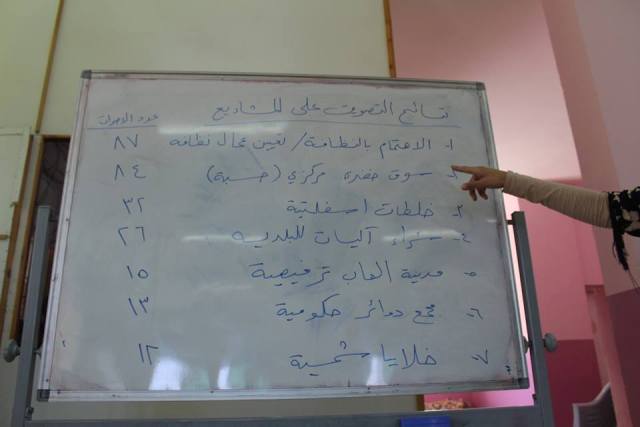 نتائج التصويت على المشاريع عدد الاصوات
١- الاهتمام بالنظافة / تعيين عمال نظافة ٨٧
٢- سوق خضره مركزي (حسبة) ٨٤
٣- خلطات اسفلتية ٣٢
٤- شراء آليات للبلدية ٢٦
٥- مدينة العاب ترفيهية ١٥
٦- مجمع دوائر حكومية ١٣
٧- خلايا شمسية ١٢